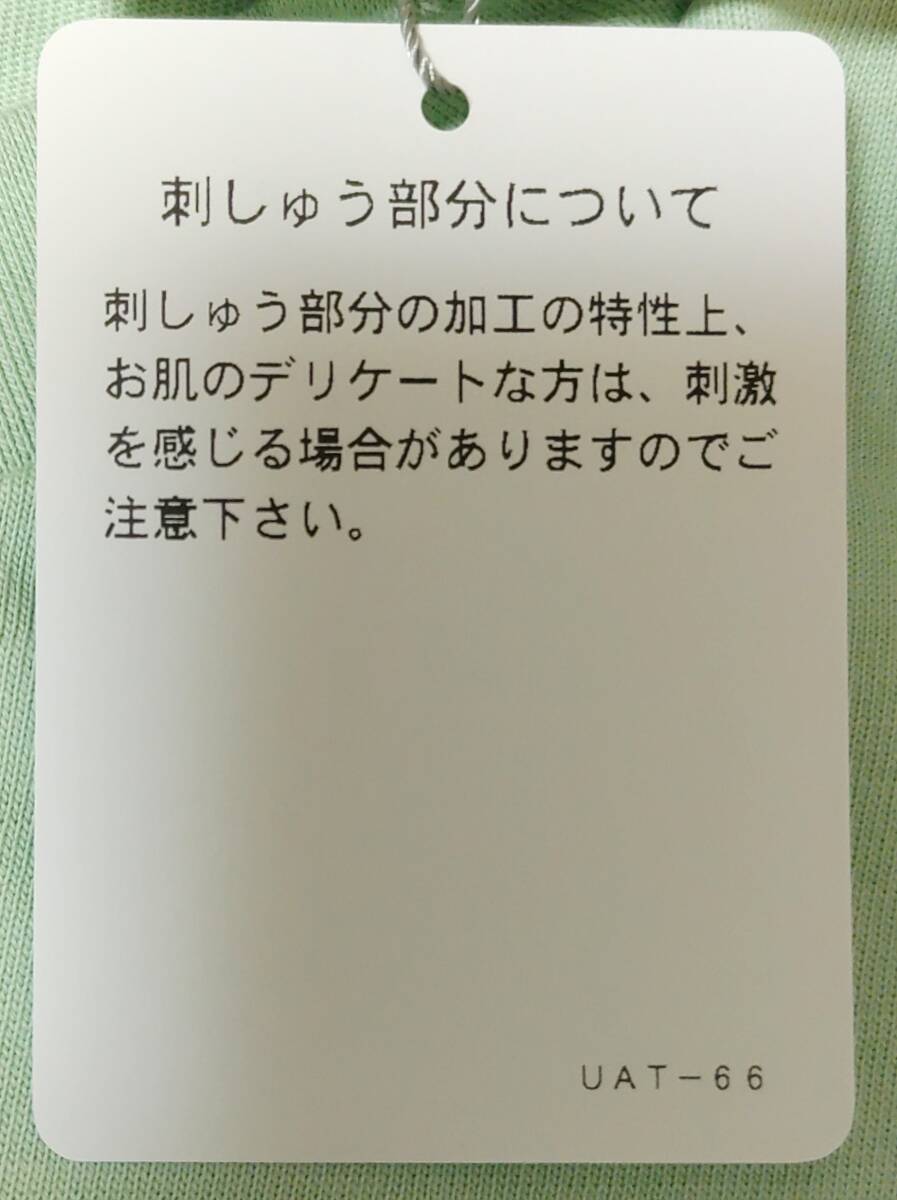 刺しゅう部分について
刺しゅう部分の加工の特性上、
お肌のデリケートな方は、刺激
を感じる場合がありますのでご
注意下さい。
UAT-66